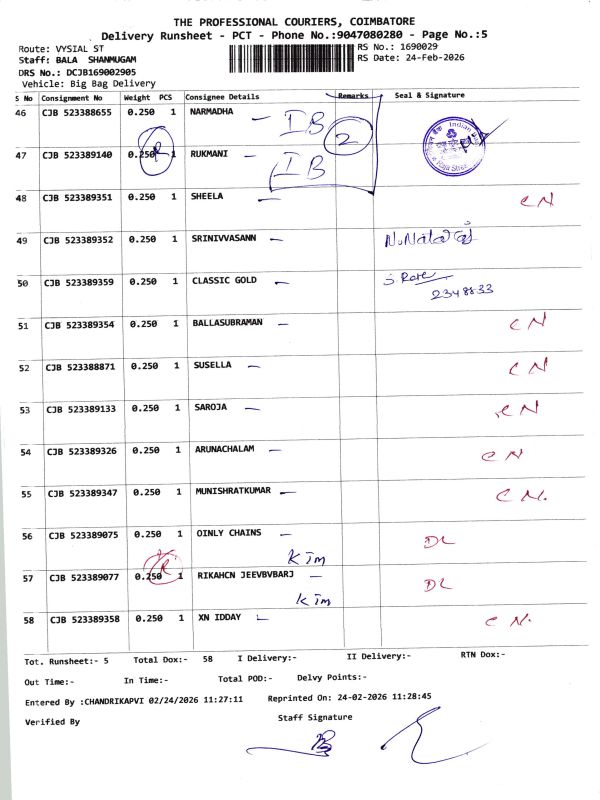 THE PROFESSIONAL COURIERS, COIMBATORE
Delivery Runsheet - PCT - Phone No.:9047080280 - Page No.:5
Route: VYSIAL ST
RS No.: 1690029
Staff: BALA SHANMUGAM
RS Date: 24-Feb-2026
DRS No.: DCJB169002905
Vehicle: Big Bag Delivery
S No Consignment No Weight PCS Consignee Details Remarks Seal & Signature
46 CJB 523388655 0.250 1 NARMADHA - IB 2
Indian
47 CJB 523389140 0.250 1 RUKMANI - IB
R
48 CJB 523389351 0.250 1 SHEELA - CN
49 CJB 523389352 0.250 1 SRINIVVASANN -
50 CJB 523389359 0.250 1 CLASSIC GOLD -
2348833
51 CJB 523389354 0.250 1 BALLASUBRAMAN - CN
52 CJB 523388871 0.250 1 SUSELLA - CN
53 CJB 523389133 0.250 1 SAROJA - CN
54 CJB 523389326 0.250 1 ARUNACHALAM - CN
55 CJB 523389347 0.250 1 MUNISHRATKUMAR - CN.
56 CJB 523389075 0.250 1 OINLY CHAINS - DL
R
Kim
57 CJB 523389077 0.250 1 RIKAHCN JEEVBVBARJ - DL
Kim
58 CJB 523389358 0.250 1 XN IDDAY - CN.
Tot. Runsheet:- 5 Total Dox:- 58 I Delivery:- II Delivery:- RTN Dox:-
Out Time:- In Time:- Total POD:- Delvy Points:-
Entered By :CHANDRIKAPVI 02/24/2026 11:27:11 Reprinted On: 24-02-2026 11:28:45
Verified By Staff Signature